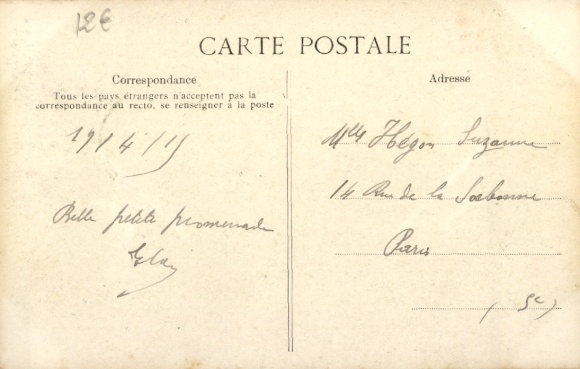 12€
CARTE POSTALE
Correspondance
Tous les pays étrangers n'acceptent pas la
correspondance au recto, se renseigner à la poste
19/4/15
Belle petite promenade
Adresse
Mlle Hégon Suzanne
14 Rue de la Sorbonne
Paris
(5e)